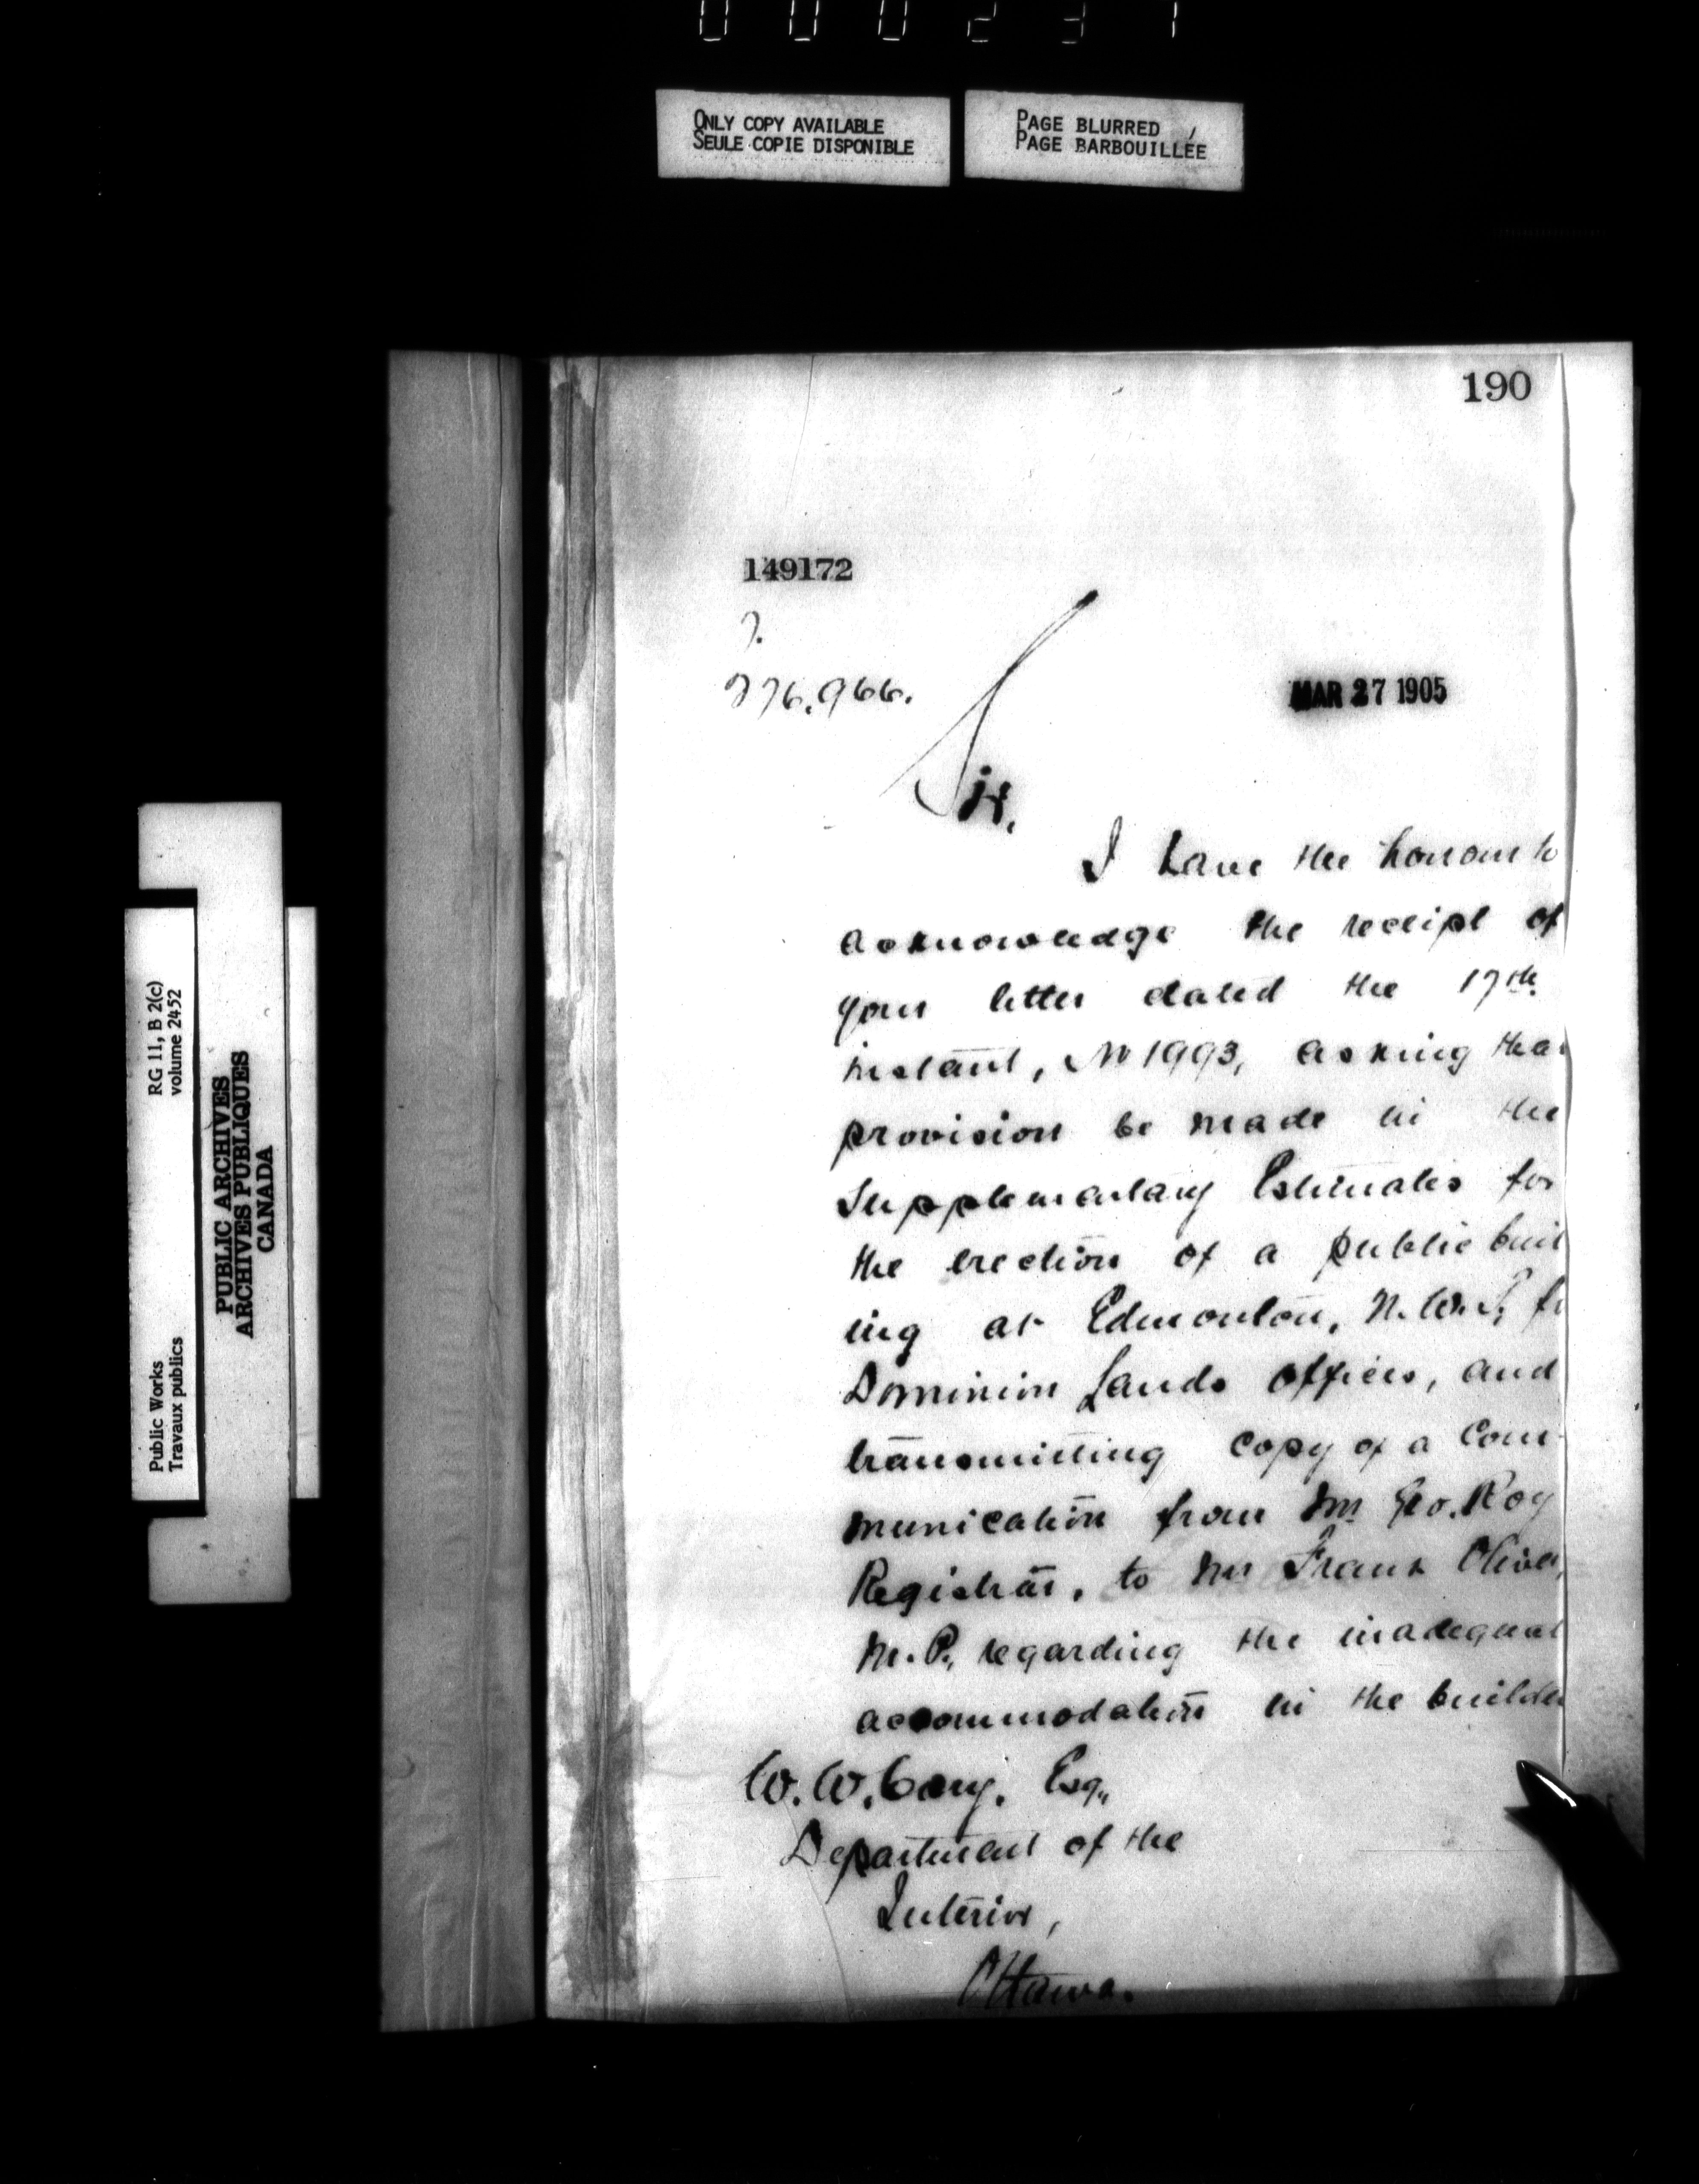 000237
ONLY COPY AVAILABLE
SEULE COPIE DISPONIBLE
PAGE BLURRED
PAGE BARBOUILLÉE
190
149172
276.966.
MAR 27 1905
Sir,
I have the honour to
acknowledge the receipt of
your letter dated the 17th
instant, No 1993, asking tha
provision be made in the
Supplementary Estimates for
the erection of a public buil
ing at Edmonton, N.W.T, fo
Dominion Lands offices, and
transmitting copy of a Com-
munication from Mr Geo. Roy
Registrar, to Mr Frank Oliver,
M.P., regarding the inadequat
accommodation in the buildin
W.W. Cory, Esq.,
Department of the
Interior,
Ottawa.
Public Works
Travaux publics
RG 11, B 2(c)
volume 2452
PUBLIC ARCHIVES
ARCHIVES PUBLIQUES
CANADA